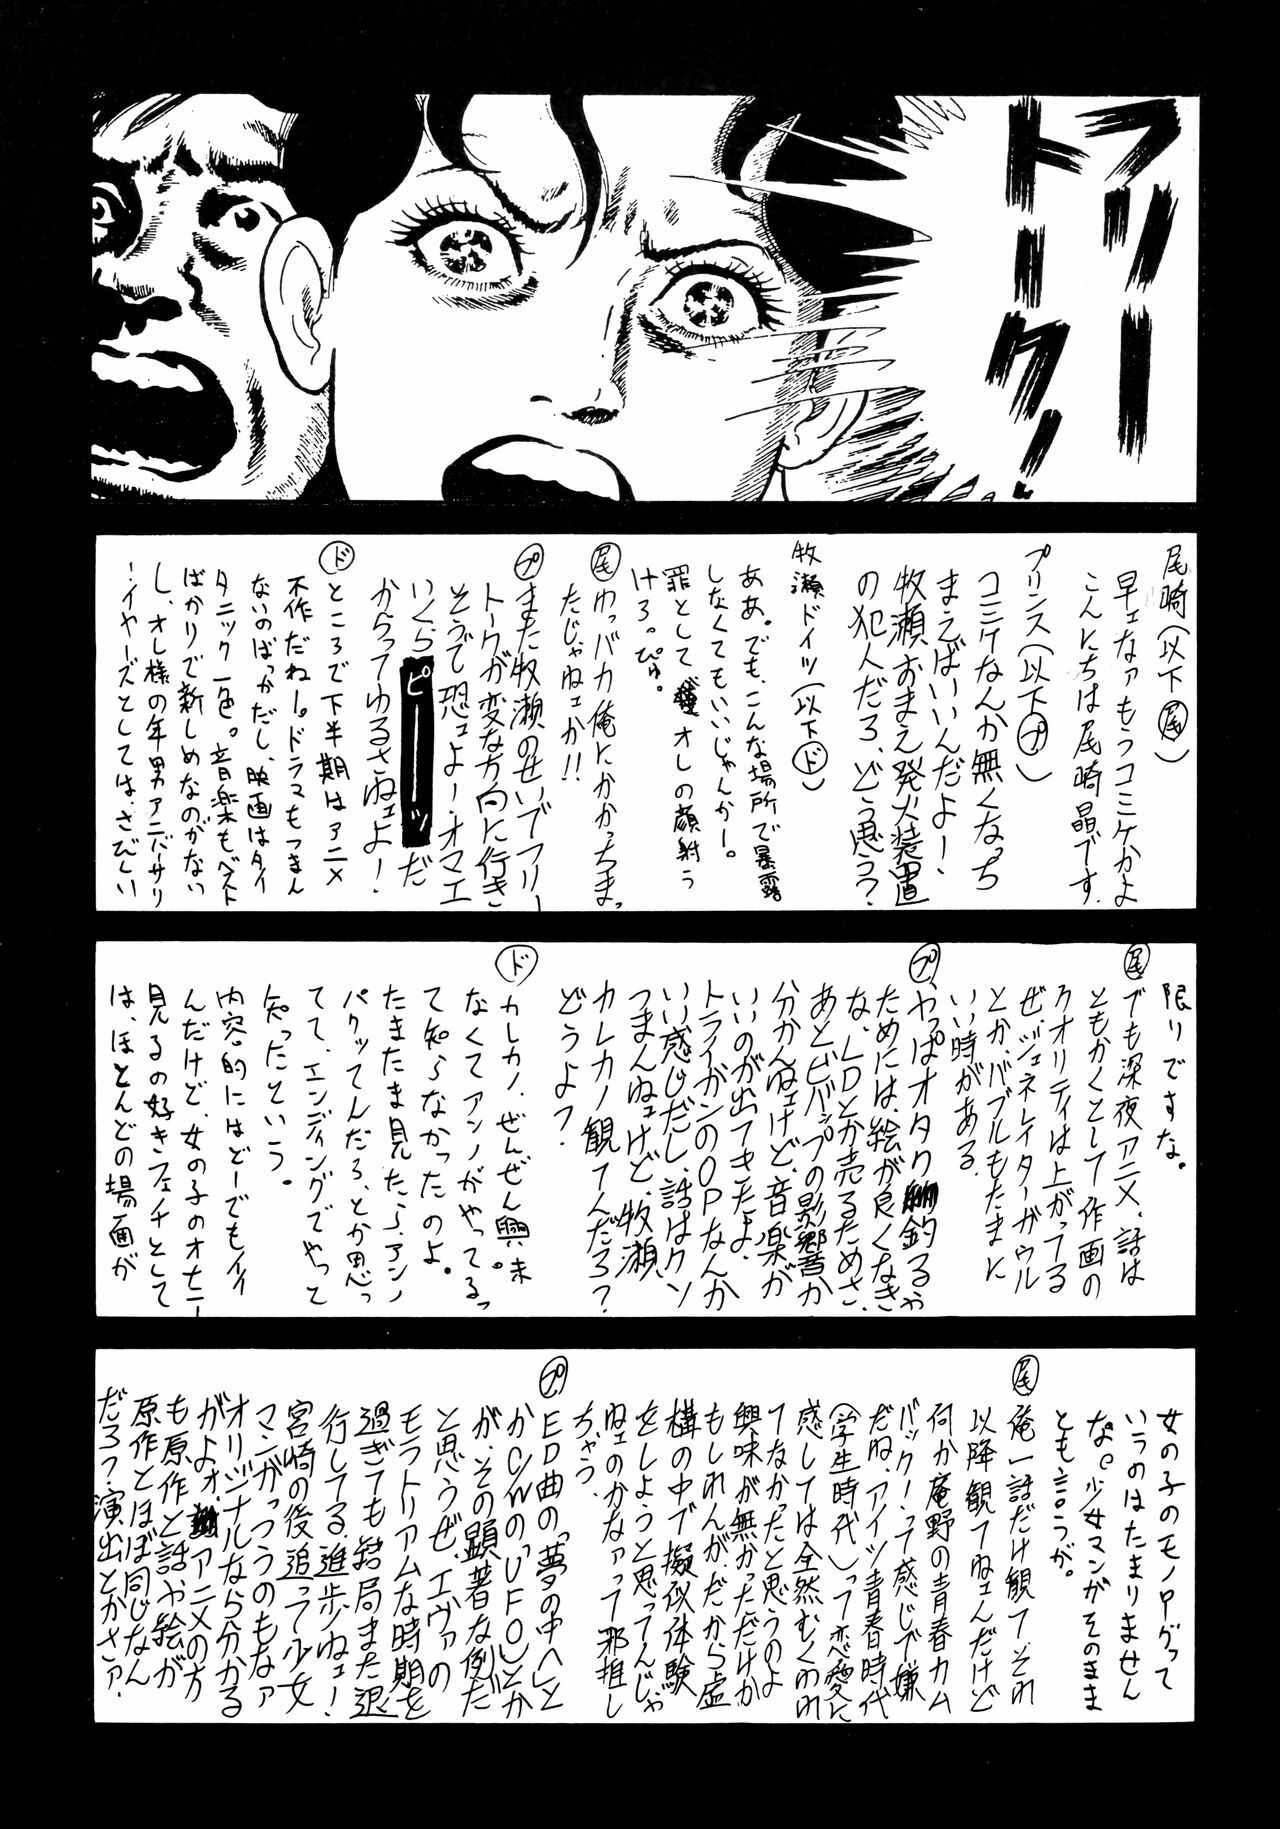 フリー
トーク!
尾崎(以下尾)
早ェなァもうコミケかよ
こんにちは尾崎晶です.
プリンス(以下プ)
コミケなんか無くなっち
まえばいいんだよー、
牧瀬おまえ発火装置
の犯人だろ、どう思う?
牧瀬ドイツ(以下ド)
ああ。でも、こんな場所で暴露
しなくてもいいじゃんかー。
罪としてオレの顔射う
けろ。ぴゅ。
尾ゆっバカ俺にかかっちまっ
たじゃねェか!!
プまた牧瀬のせいでフリー
トークが変な方向に行き
そうで恐ェよー・オマエ
いくらピーーーッだ
からってゆるさねェよ!
ドところで下半期はアニメ
不作だねー。ドラマもつまん
ないのばっかだし、映画はタイ
タニック一色。音楽もベスト
ばかりで新しめなのがない
し、オレ様の年男アニバーサリ
ーイヤーズとしては、さびしい
限りですな。
尾でも深夜アニメ、話は
ともかくとして作画の
クオリティは上がってる
ぜ、ジェネレイターガウル
とか、バブルもたまに
いい時がある.
プやっぱオタク釣るゃ
ためには、絵が良くなき
な、LDとか売るためさ、
あとビバップの影響か
分かんねェけど、音楽が
いいのが出てきたよ、
トライガンのOPなんか
いい感じだし、話はクソ
つまんねェけど、牧瀬、
カレカノ観てんだろ?
どうよ?
ドカレカノ、ぜんぜん興味
なくてアンノがやってるっ
て知らなかったのよ。
たまたま見たら、アンノ
パクッてんだろ、とか思っ
てて、エンディングでやって
知ったという。
内容的にはどーでもイイ
んだけど、女の子のオナニー
見るの好きフェチとして
は、ほとんどの場面が
女の子のモノローグって
いうのはたまりません
な。少女マンガそのまま
とも言うが。
尾俺一話だけ観てそれ
以降観てねェんだけど
何か庵野の青春カム
バックーって感じで嫌
だね、アイツ青春時代
(学生時代)って恋愛に
感しては全然むくわれ
てなかったと思うのよ
興味が無かっただけか
もしれんが、だから虚
構の中で擬似体験
をしようと思ってんじゃ
ねェのかなァって邪推し
ちゃう.
プED曲の「夢の中へ」と
かC/Wの「UFO」とか
が、その顕著な例だ
と思うぜ、エヴァの
モラトリアムな時期を
過ぎても結局また退
行してる、進歩ねェ!
宮崎の後追って少女
マンガっつうのもなァ
オリジナルなら分かる
がよォ、アニメの方
も原作と話や絵が
原作とほぼ同じなん
だろ?演出とかさァ.